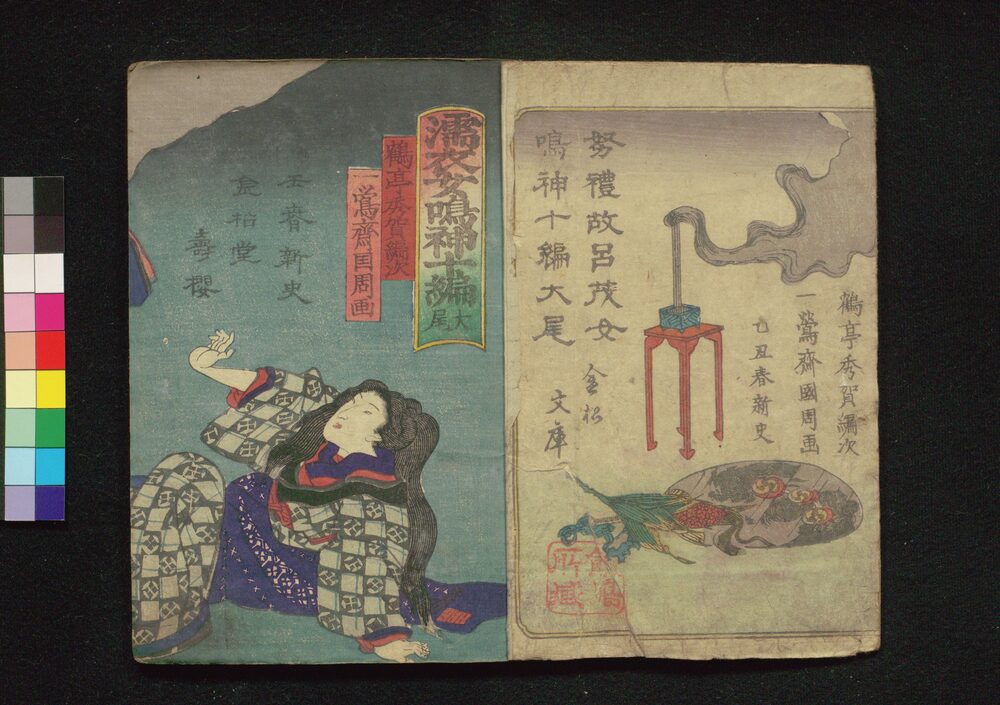 鶴亭秀賀編次
一鶯齋國周画
乙丑春新史
努禮故呂茂女
鳴神十編大尾
金松
文庫
所藏
濡衣女鳴神十編
大尾
鶴亭秀賀編次
一鶯齋国周画
壬春新史
壽櫻